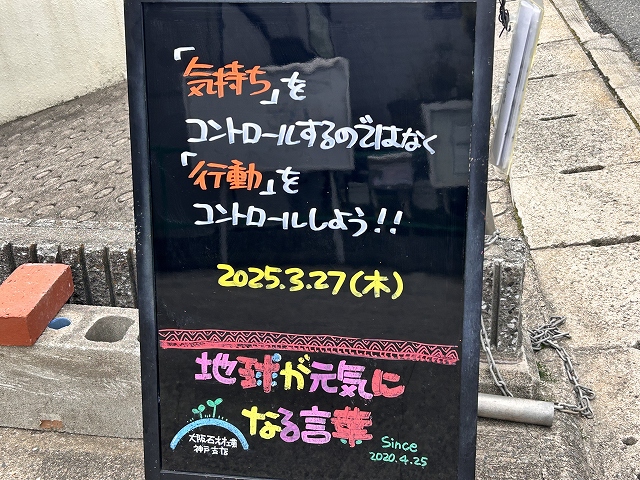 「気持ち」を
コントロールするのではなく
「行動」を
コントロールしよう!!
2025.3.27(木)
地球が元気に
なる言葉
大阪石材工業
神戸店
Since
2020.4.25